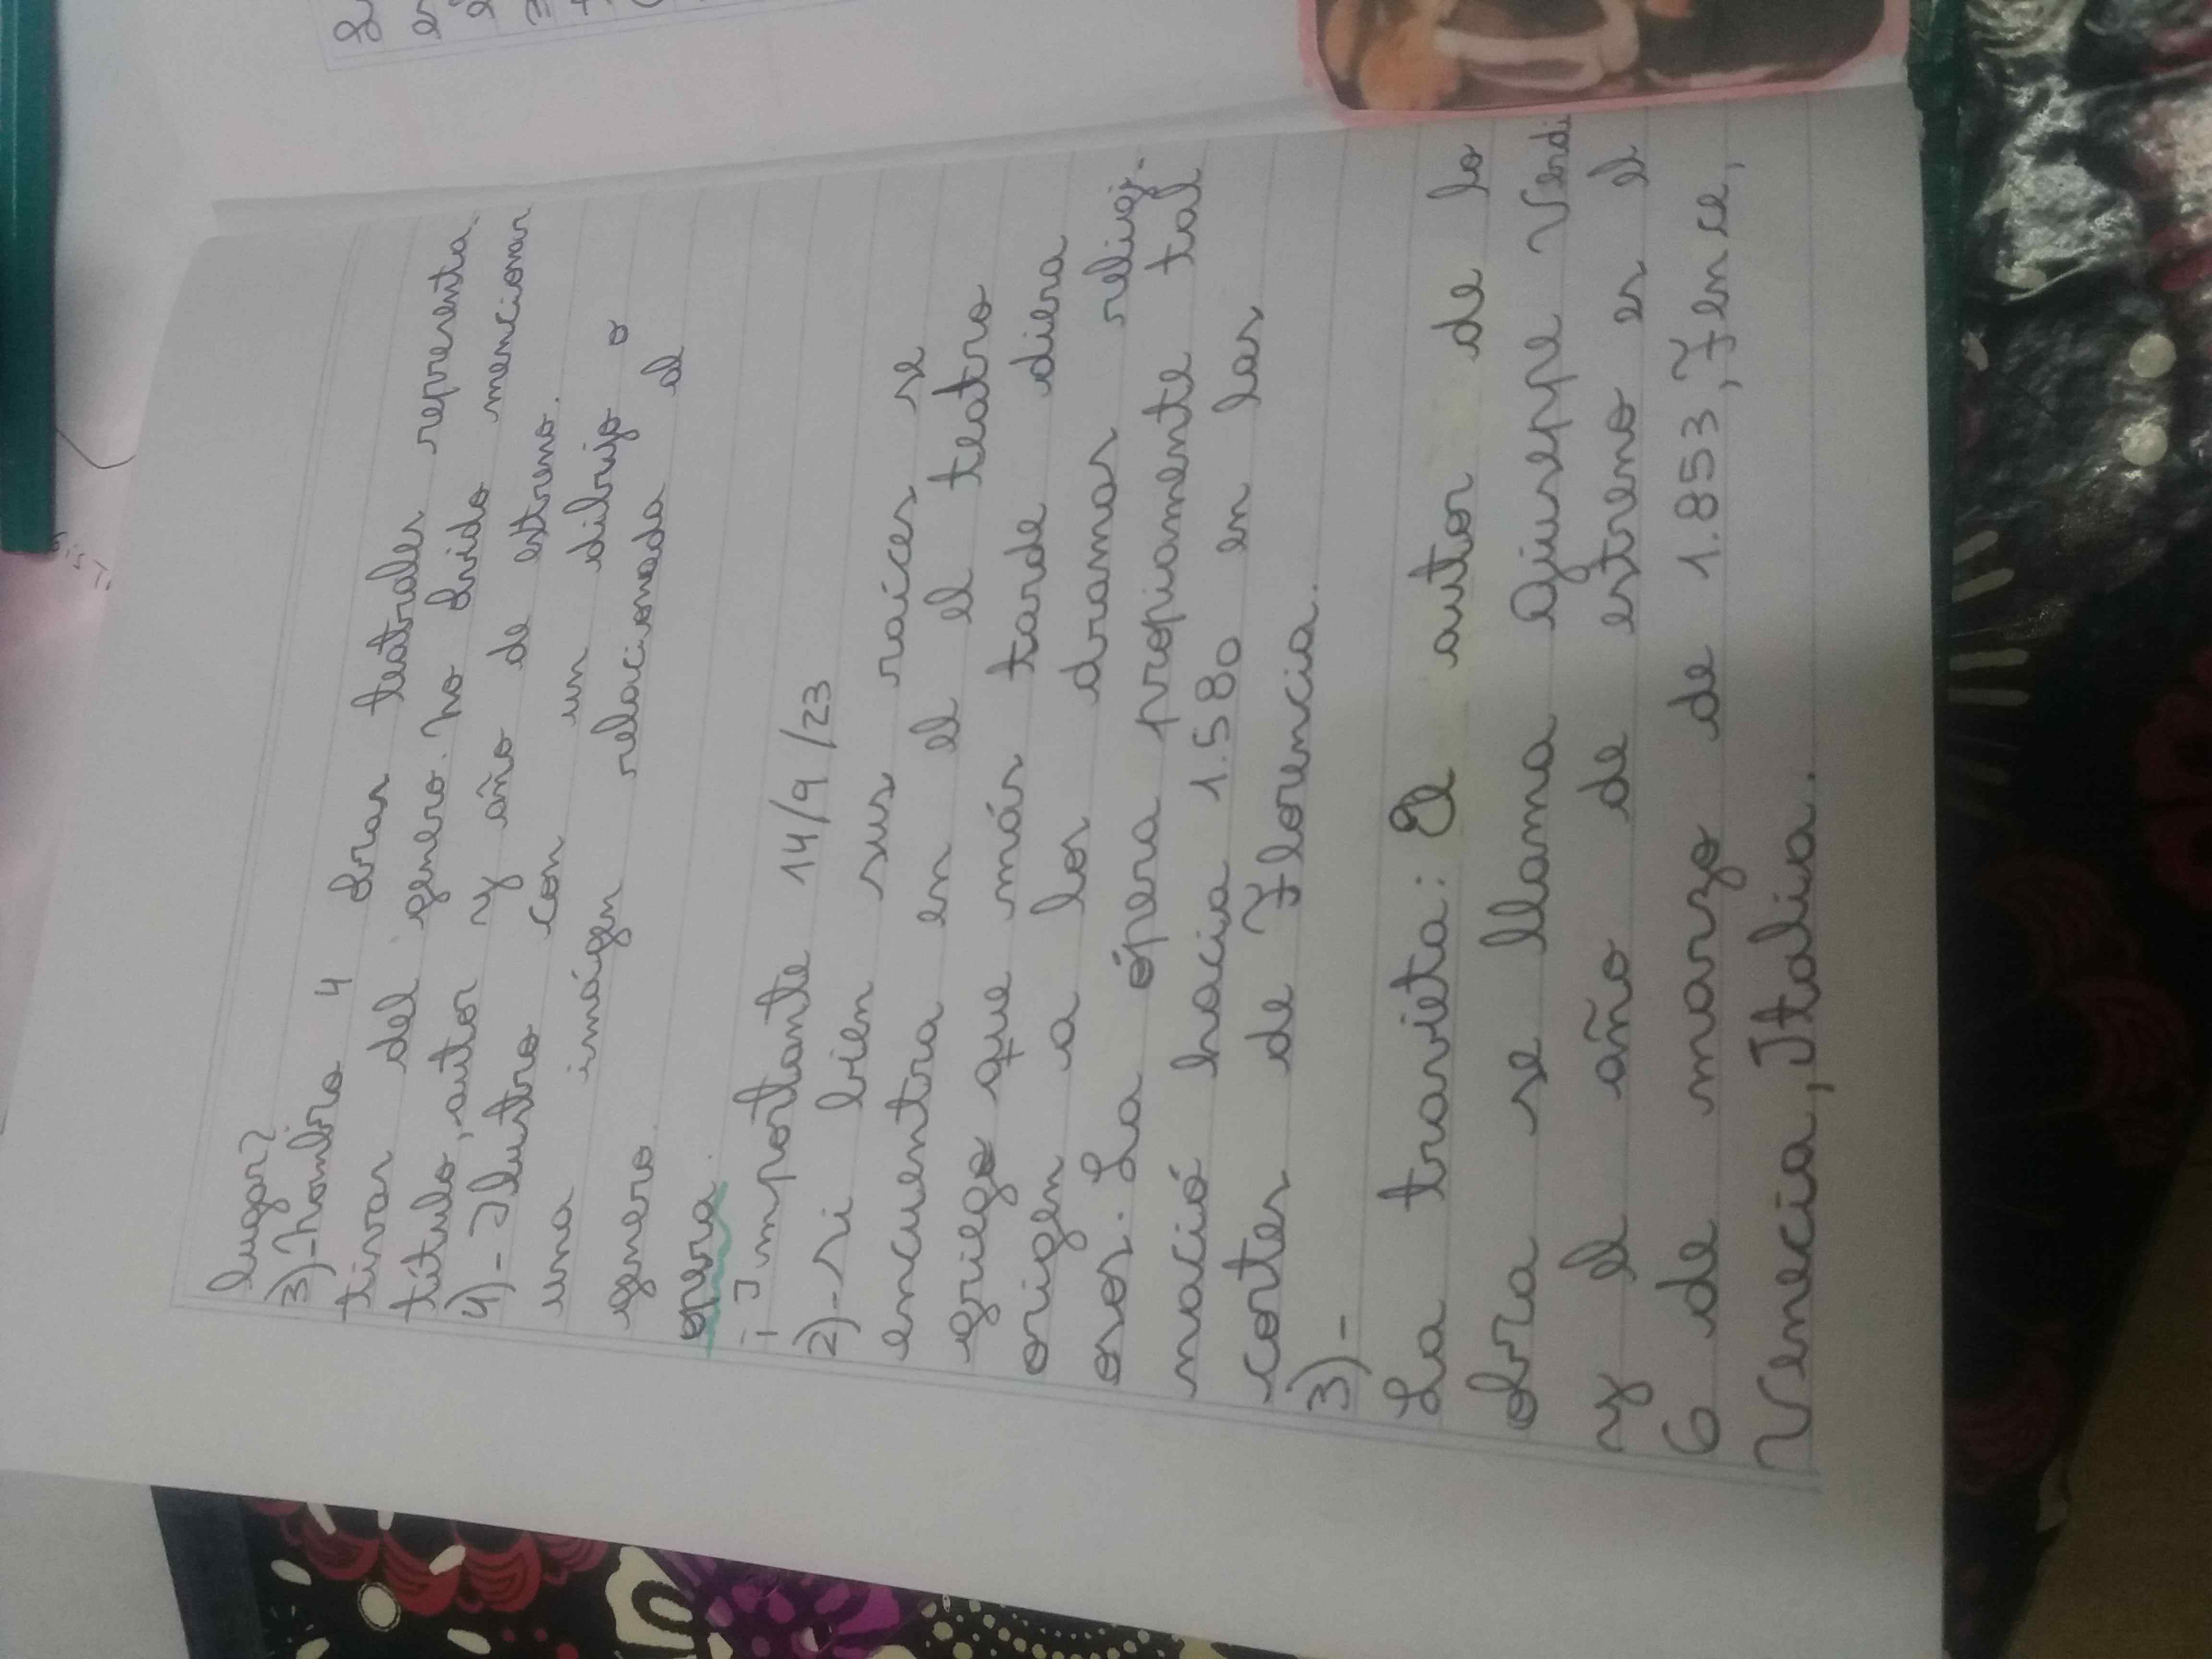 lugar?
3)-nombro 4 obras teatrales representa.
tivas del genero. no olvido mencionar
título, autor y año de estreno.
4)-Ilustro con un dibujo o
una imágen relacionada al
genero.
opera.
¡Importante 14/9/23
2)-si bien sus raíces se
encuentra en el el teatro
griego que más tarde diera
origen a los dramas religi-
osos. La ópera propiamente tal
nació hacia 1.580 en las
cortes de Florencia.
3)-
La travieta: El autor de lo
obra se llama Giusepe Verdi
y el año de estreno es el
6 de marzo de 1.853, Fence,
Venecia, Italia.